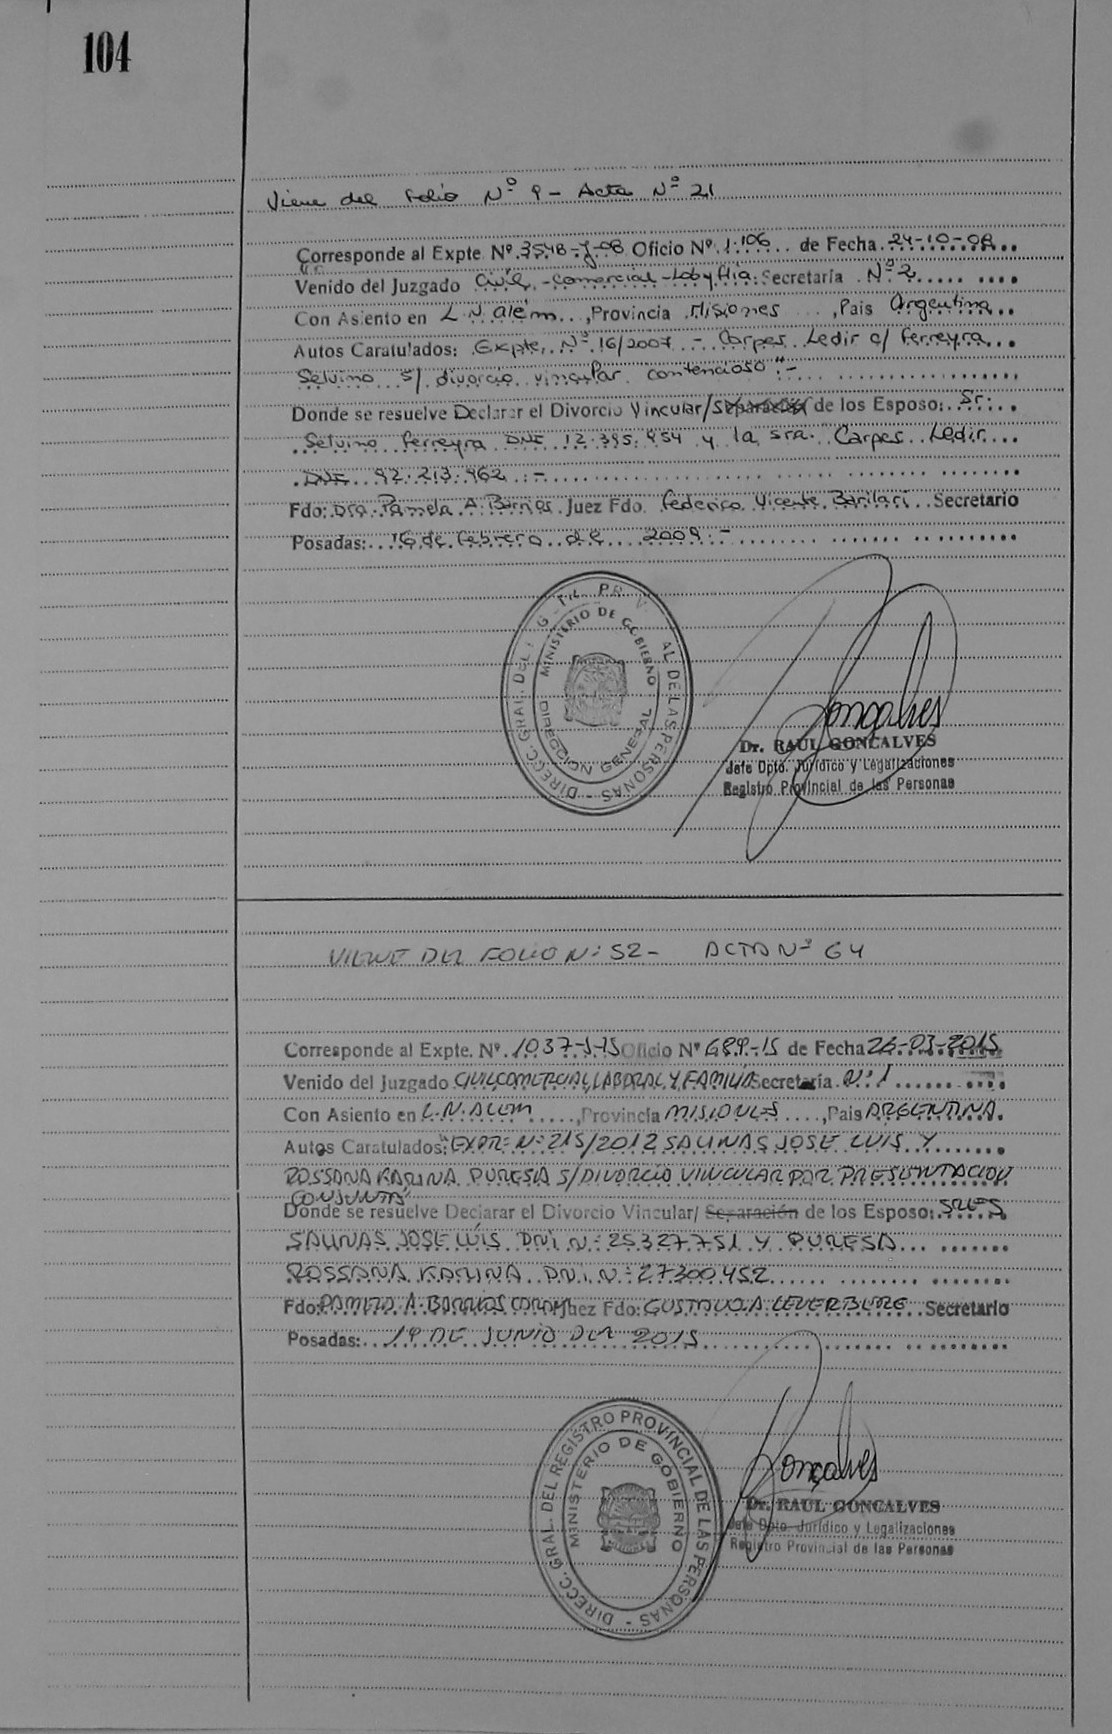 104
Viene del Folio Nº 9 - Acta Nº 21
Corresponde al Expte Nº 3548-J-08 Oficio Nº 1.106 de Fecha 24-10-08
Venido del Juzgado Civil, -Comercial-Lab y Flia. Secretaría Nº 2
Con Asiento en L.N. Além, Provincia Misiones, Pais Argentina
Autos Caratulados: Expte, Nº 16/2007 - Carpes Ledir c/ Ferreyra
Selvino s/ divorcio vincular contencioso".-
Donde se resuelve Declarar el Divorcio Vincular/Separación de los Esposo: Sr.
Selvino Ferreyra DNI 12.395.954 y la sra. Carpes Ledir
DNI 92.213.962.-
Fdo: Dra. Pamela A. Barrios Juez Fdo. Federico Vicente Barilari Secretario
Posadas: 16 de febrero de 2009.-
MINISTERIO DE GOBIERNO
DIRECCION GENERAL
DIRECC. GRAL. DEL AL DE LAS PERSONAS
Dr. RAUL GONCALVES
Jefe Dpto. Jurídico y Legalizaciones
Registro Provincial de las Personas
VIENE DEL FOLIO N: 52- ACTA Nº 64
Corresponde al Expte. Nº 1037-J-15 Oficio Nº 689-15 de Fecha 26-03-2015
Venido del Juzgado CIVIL, COMERCIAL, LABORAL Y FAMILIA Secretaría Nº 1
Con Asiento en L.N. ALEM, Provincia MISIONES, Pais ARGENTINA.
Autos Caratulados: "EXPTE Nº 215/2012 SALINAS JOSE LUIS Y
ROSSANA KARINA PURESA S/DIVORCIO VINCULAR POR PRESENTACION
CONJUNTA"
Donde se resuelve Declarar el Divorcio Vincular/ Separación de los Esposo: SRES
SALINAS JOSE LUÍS DNI N: 25327751 Y PURESA
ROSSANA KARINA DNI N: 27300452
Fdo: PAMELA A. BARRIOS Juez Fdo: GUSTAVO A. Secretario
Posadas: 19 DE JUNIO DEL 2015
DIRECC. GRAL. DEL REGISTRO PROVINCIAL DE LAS PERSONAS
MINISTERIO DE GOBIERNO
Dr. RAUL GONCALVES
Jefe Dpto. Jurídico y Legalizaciones
Registro Provincial de las Personas